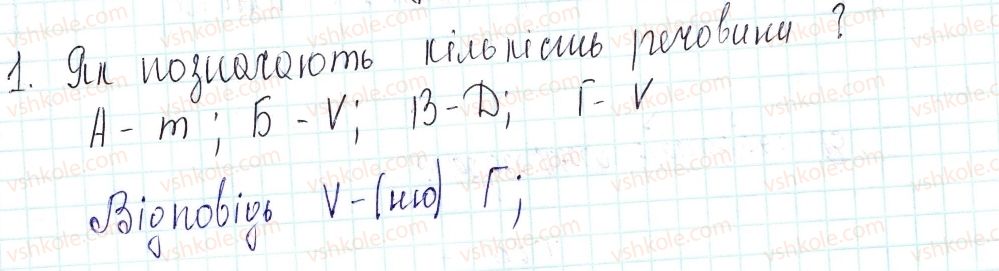 1. Як позначають кількість речовини ?
А - m ; Б - V; В - D; Г - V
Відповідь V - (ню) Г;